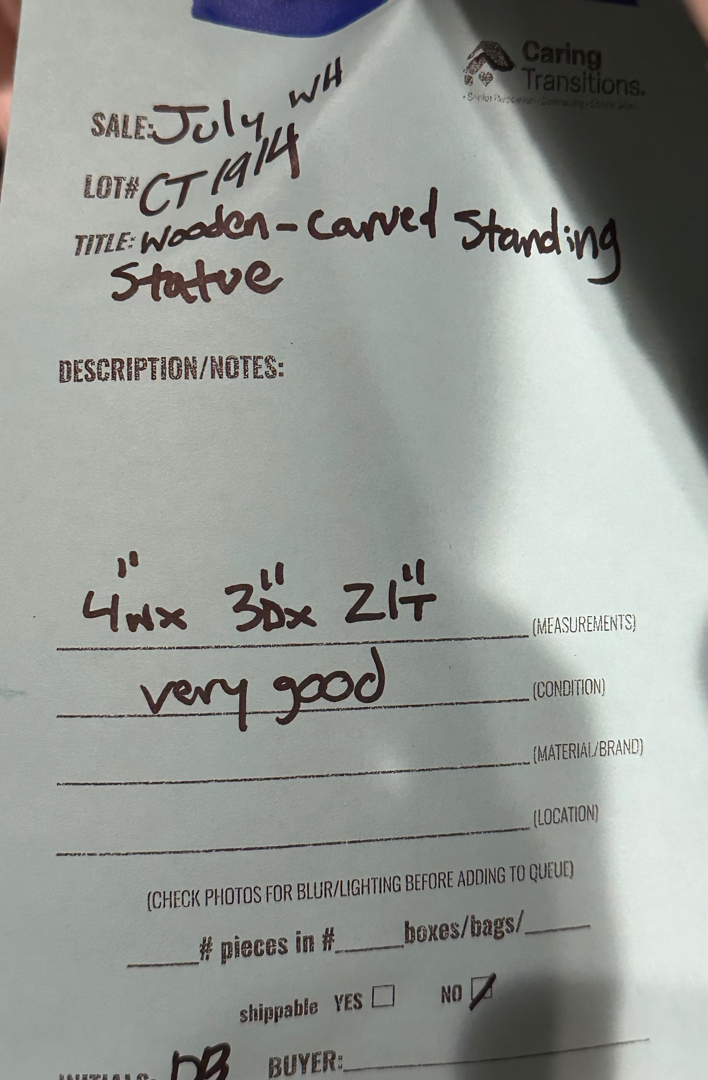 Caring
Transitions.
SALE: July WH
LOT# CT1914
TITLE: Wooden-Carved Standing
Statue
DESCRIPTION/NOTES:
4"W x 3"D x 21"T (MEASUREMENTS)
very good (CONDITION)
(MATERIAL/BRAND)
(LOCATION)
(CHECK PHOTOS FOR BLUR/LIGHTING BEFORE ADDING TO QUEUE)
# pieces in # boxes/bags/
shippable YES NO
INITIALS: DB BUYER: